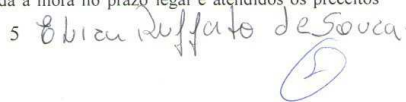 da a mora no prazo legal e atendidos os preceitos
5 Ruffato de Souza